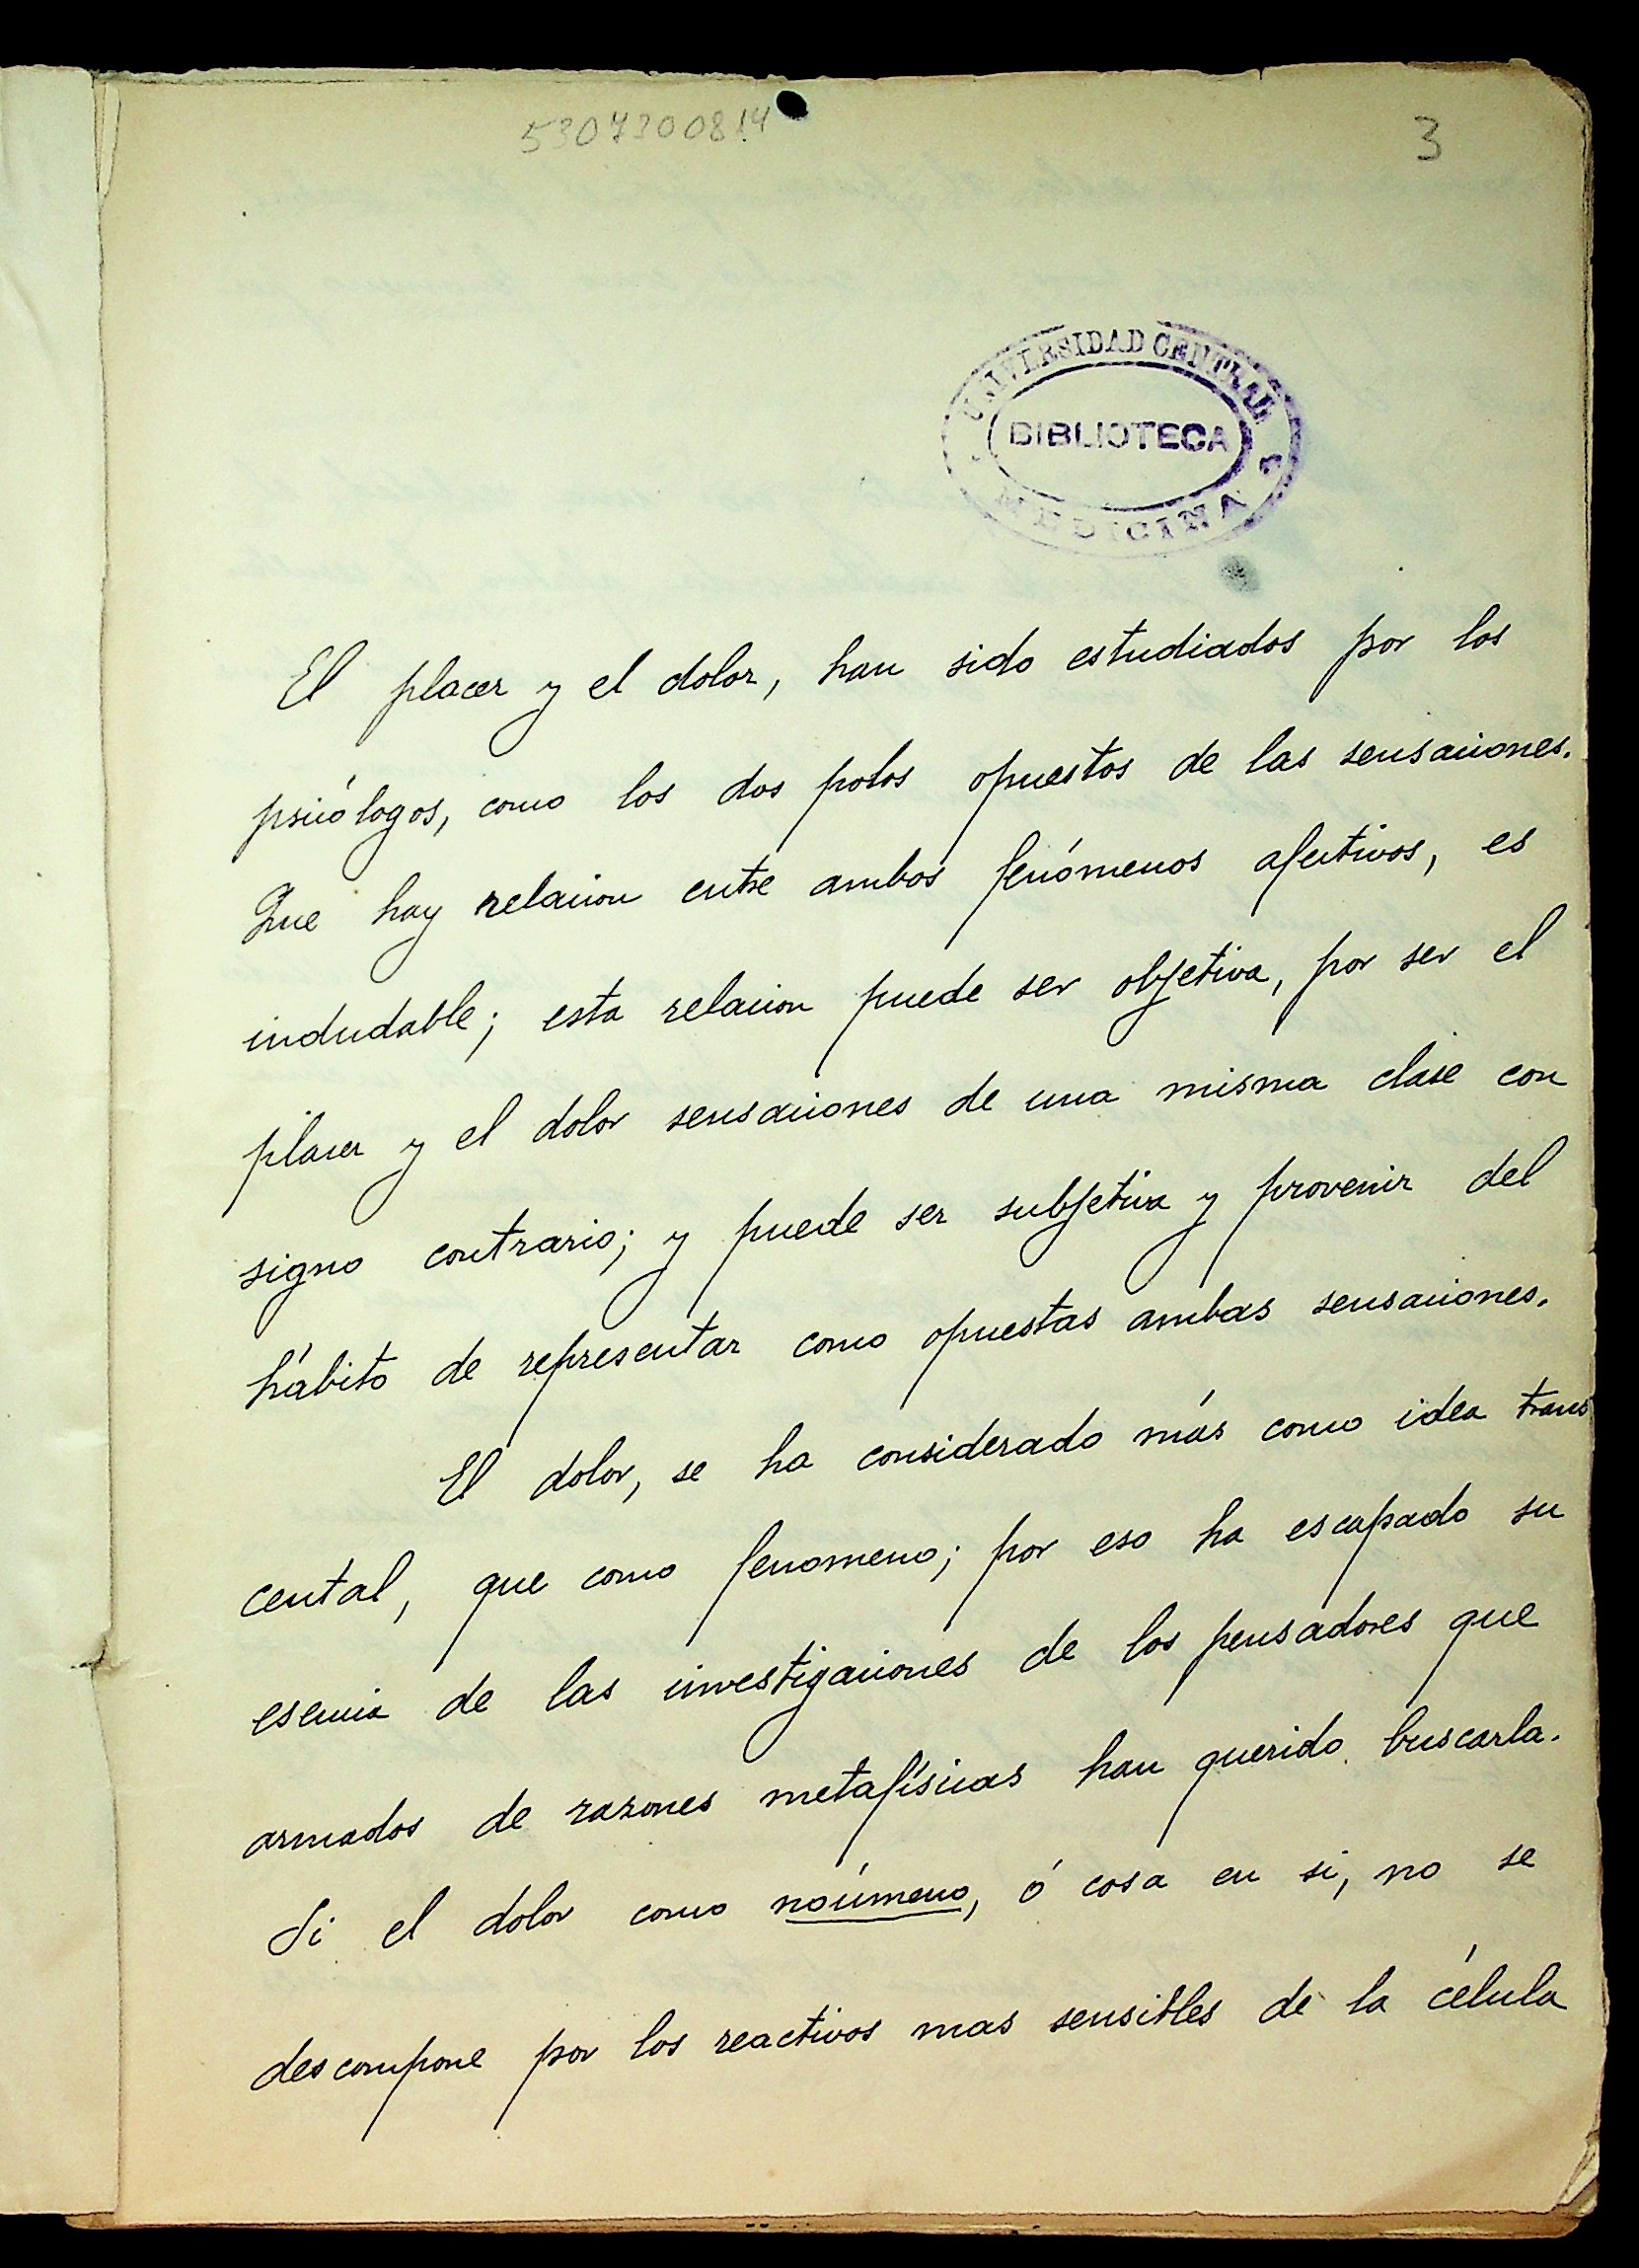 5307300814
3
UNIVERSIDAD CENTRAL
BIBLIOTECA
MEDICINA
El placer y el dolor, han sido estudiados por los
psicólogos, como los dos polos opuestos de las sensaciones.
Que hay relacion entre ambos fenómenos afectivos, es
indudable; esta relacion puede ser objetiva, por ser el
placer y el dolor sensaciones de una misma clase con
signo contrario; y puede ser subjetiva y provenir del
hábito de representar como opuestas ambas sensaciones.
El dolor, se ha considerado más como idea trans
cental, que como fenomeno; por eso ha escapado su
esencia de las investigaciones de los pensadores que
armados de razones metafísicas han querido buscarla.
Si el dolor como noúmeno, ó cosa en si, no se
descompone por los reactivos mas sensibles de la célula